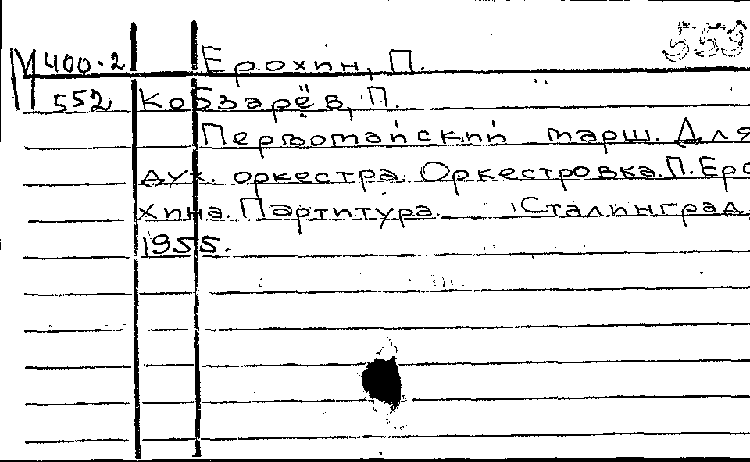 М 400-2 Ерохин, П. 559
552 Кобзарёв, П.
Первомайский марш. Для
дух. оркестра. Оркестровка П. Еро-
хина. Партитура. Сталинград,
1955.